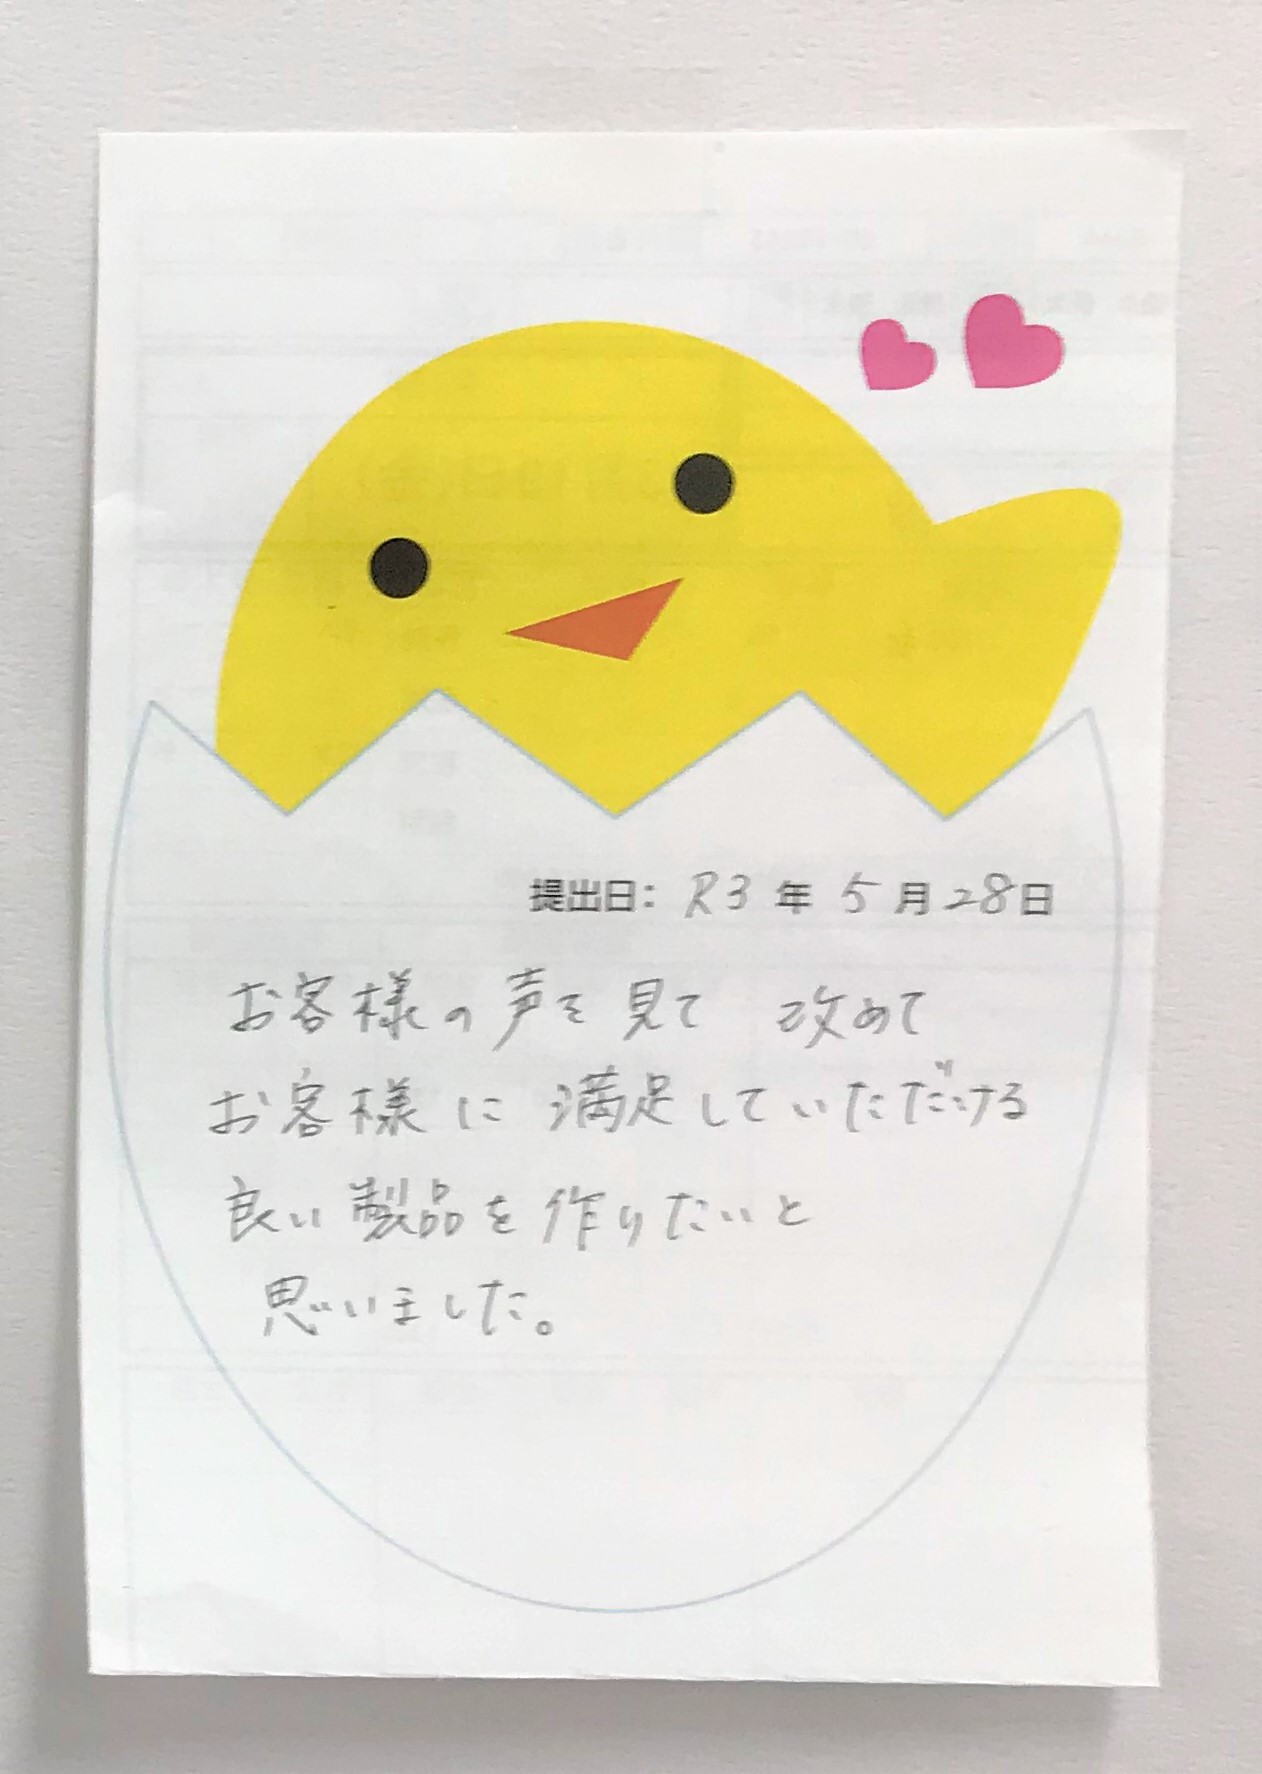 提出日: R3 年 5 月 28 日
お客様の声を見て 改めて
お客様に満足していただける
良い製品を作りたいと
思いました。